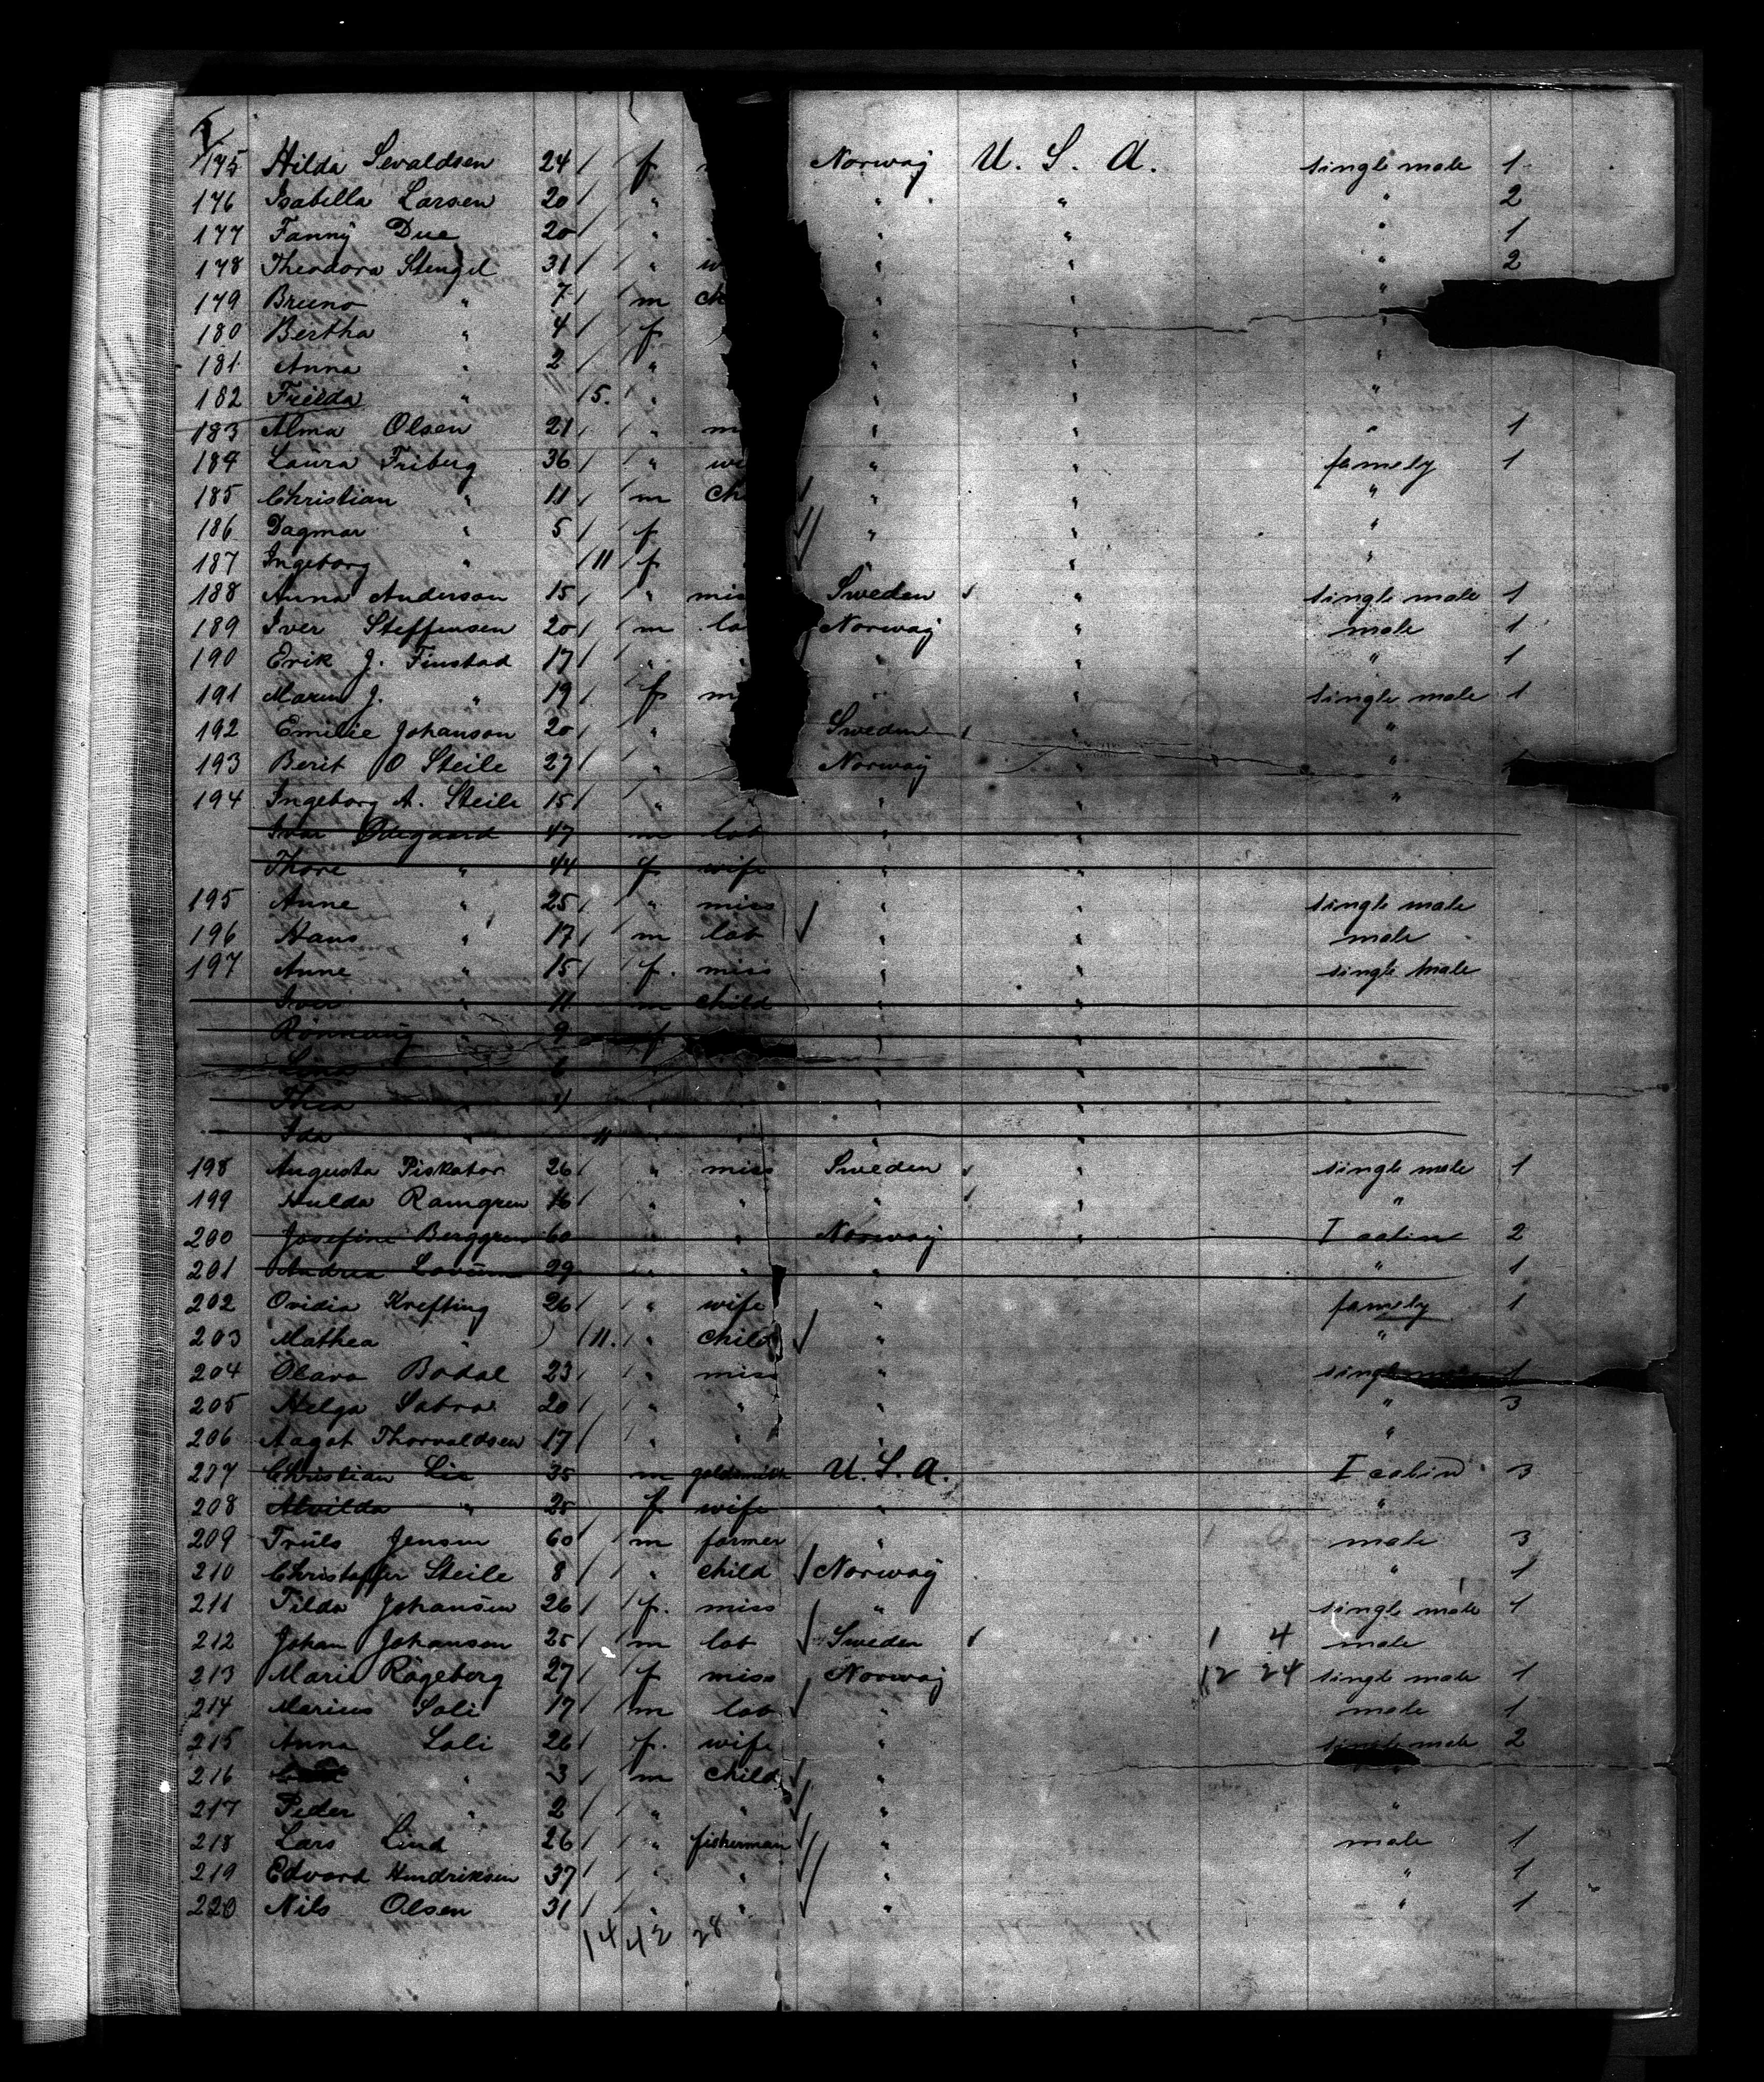 175 Hilda Sevaldsen 24 / / f Norway U. S. A. single male 1
176 Isabella Larsen 20 / / " " " " 2
177 Fanny Due 20 / / " " " " 1
178 Theodora Stengel 31 / / " w " " " 2
179 Bruno " 7 / / m ch " " "
180 Bertha " 4 / / f " "
181 Anna " 2 / / " " " "
182 Frieda " / 5. / " " " "
183 Alma Olsen 21 / / " m " " " 1
184 Laura Friberg 36 / / " wi " " famely 1
185 Christian " 11 / / m ch " " "
186 Dagmar " 5 / / f " " "
187 Ingeborg " / 11 / f " "
188 Anna Anderson 15 / / " mis Sweden " single male 1
189 Iver Steffensen 20 / / m la Norway " male 1
190 Erik J. Finstad 17 / / " " " " " 1
191 Maren J. " 19 / / f m " " single male 1
192 Emilie Johanson 20 / / " Sweden " "
193 Berit O Steile 27 / / " Norway " " 1
194 Ingeborg A. Steile 15 / / " " " "
Ivar Ødegaard 47 m lab " "
Thore " 44 f wife " "
195 Anne " 25 / / " miss " " single male
196 Hans " 17 / / m lab " " male
197 Anne " 15 / / f. miss " " single male
Iver " 11 m child " "
Rønnaug " 9 f " "
" " "
Thea " 4 " " " "
Ida " 11 " " " "
198 Augusta Piskator 26 / / " miss Sweden " single male 1
199 Hulda Ramgren 16 / / " " " "
200 Josefine Berggren 60 " Norway " I cabin 2
201 Andrea 29 " " " " 1
202 Ovidia Krefting 26 / / " wife " famely 1
203 Mathea " / 11. / " child " "
204 Olava Bodal 23 / / " miss " single male 1
205 Helga Sabra 20 / / " " " " 3
206 Aagot Thorvaldsen 17 / / " " " "
207 Christian Lie 35 m goldsmith U. S. A. I cabin 3
208 Alvilda " 25 f wife " "
209 Truls Jensen 60 / / m farmer " male 3
210 Christoffer Steile 8 / / " child Norway " 1
211 Tilda Johansen 26 / / f. miss " single male 1
212 Johan Johansen 25 / / m lab Sweden 1 4 male
213 Marie Rågeberg 27 / / f miss Norway 12 24 single male 1
214 Marius Soli 17 / / m lab " male 1
215 Anna Soli 26 / / f. wife " single male 2
216 " 3 / / m child "
217 Peder " 2 / / " " " "
218 Lars Lind 26 / / " fisherman " male 1
219 Edvard Hendriksen 37 / / " " " " 1
220 Nils Olsen 31 / / " " " " 1
14 42 28